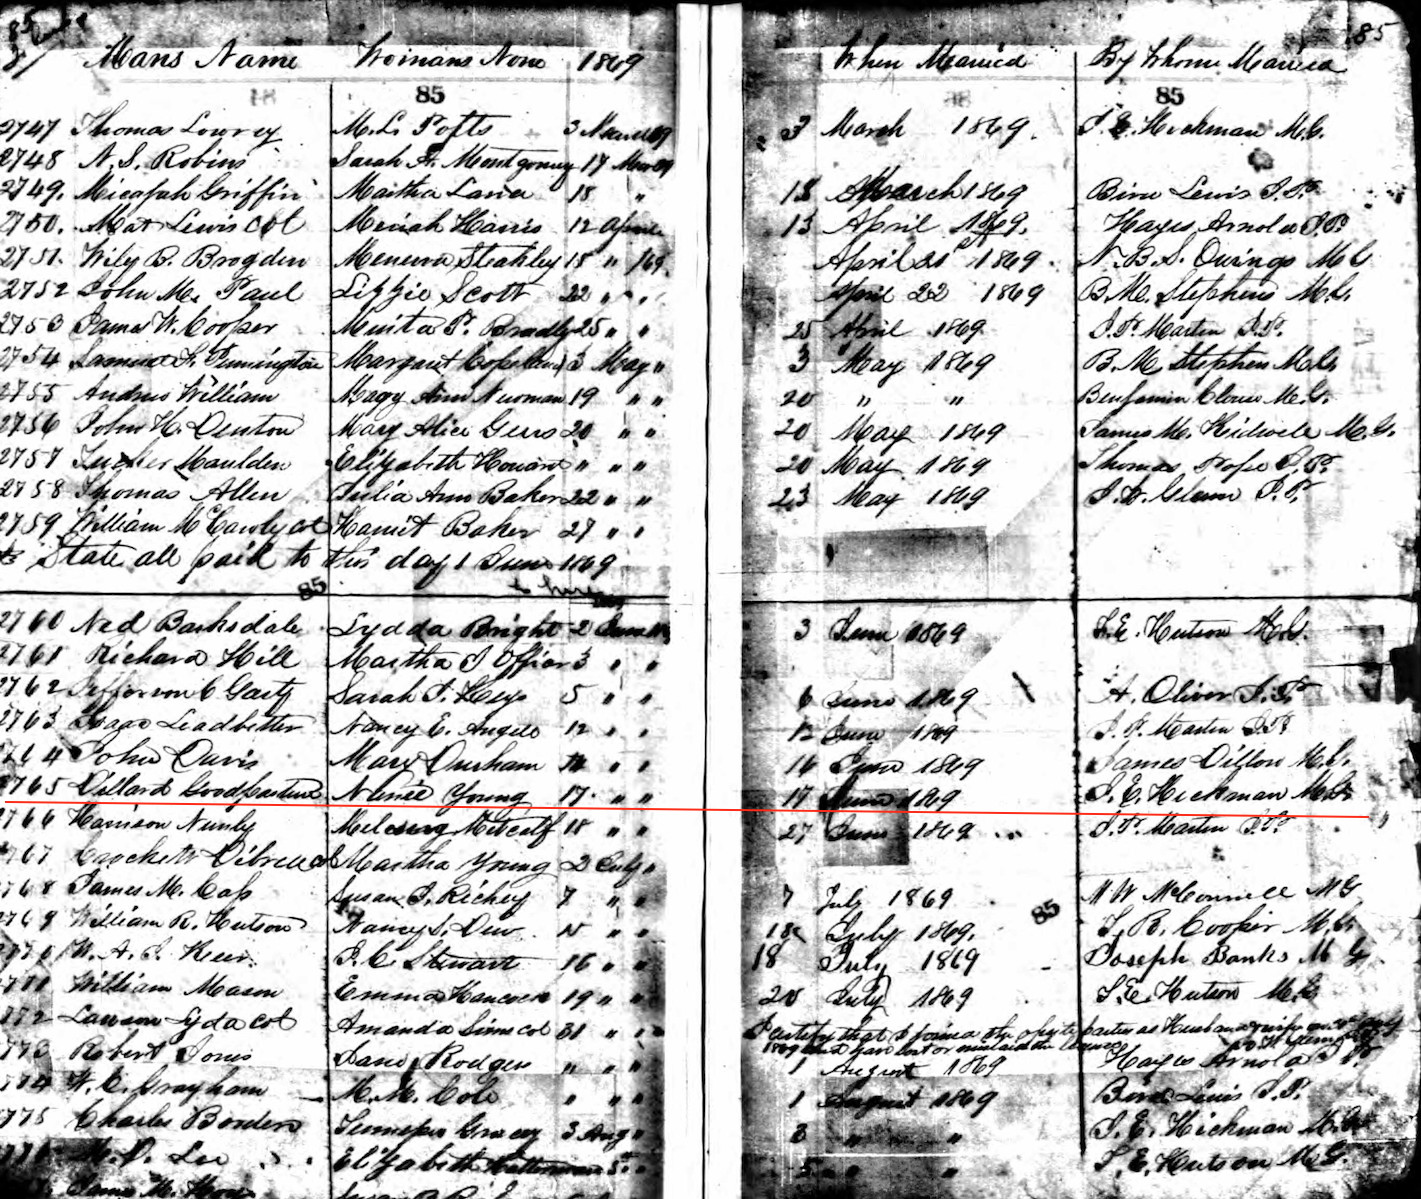 85
Mans Name Womans Name 1869 When Married By Whom Married
85 85
2747 Thomas Lowrey M. L. Pofts 3 March 69 3 March 1869. J. E. Hickman M.G.
2748 N. S. Robins Sarah A. Montgomery 17 Mar 69
2749. Micajah Griffin Martha 18 " 18 March 1869 Lewis J.P.
2750. Mat Lewis col Meriah Harris 12 April 13 April 1869. Hayes Arnold J.P.
2751. Wily B. Brogden Menerva Stakley 15 " /69. April 21st 1869. N. B. S. Owings M.G.
2752 John M. Paul Lizzie Scott 22 " " April 22 1869 B. M. Stephens M.G.
2753 James W. Cooper P. Bradly 25 " " 25 April 1869 J. P. Martin J.P.
2754 Samuel Pennington Margaret Copeland 3 May " 3 May 1869 B. M. Stephens M.G.
2755 Andrew William Magy Ann Newman 19 " " 20 " " Benjamin Clouse M.G.
2756 John H. Denton Mary Alice 20 " " 20 May 1869 James M. Kidwell M.G.
2757 Maulden Elizabeth Howard " " " 20 May 1869 Thomas Pope J.P.
2758 Thomas Allen Julia Ann Baker 22 " " 23 May 1869 Glenn J.P.
2759 William col Harriet Baker 27 " "
State all paid to this day 1 June 1869
85
2760 Ned Barksdale Lydda Bright 2 June 3 June 1869 J. E. Hutson M.G.
2761 Richard Hill Martha J Officer 3 " "
2762 Jefferson C Sarah J. 5 " " 6 June 1869 A. Oliver J.P.
2763 Isaac Leadbetter Nancy E. Angelo 12 " " 12 June 1869 J. P. Martin J.P.
2764 John Davis Mary Durham " " 16 June 1869 James Dillon M.G.
2765 Dillard Goodpasture Young 17 " " 17 June 1869 J. E. Hickman M.G.
2766 Harrison Nunly Metcalf 18 " " 27 June 1869 J. P. Martin J.P.
2767 Crockett Dibrell col Martha Young 2 July "
2768 James M. Cass Susan J. Richey 7 " " 7 July 1869 McConnell M.G.
85
2769 William R. Hutson Nancy J. Dew " " July 1869. Cooper M.G.
2770 W. A. J. J. C. Stewart 16 " " 18 July 1869 Joseph Banks M G.
2771 William Mason Emma Hancock 19 " " July 1869 J. E. Hutson M.G.
2772 Lawson Lyda col Amanda Sims col 31 " " I certify that I joined the parties as Husband
2773 Robert Jones Jane Rodgers " " " 1 August 1869 Hayes Arnold J.P.
2774 W. C. Grayham M. M. Cole " " " 1 August 1869 Lewis J.P.
2775 Charles Borden Gracey 3 Aug " 3 " " J. E. Hickman M.G.
M. P. Lee Elizabeth 5 " " 5 " " J. E. Hutson M.G.
James M.